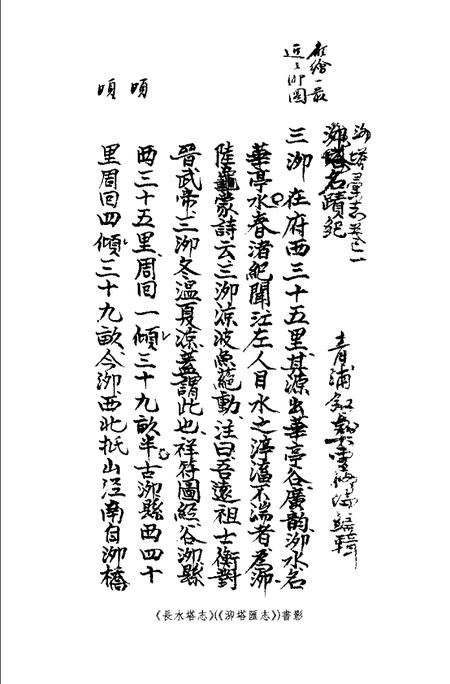 應繪一最
近三泖圖
泖塔彙志卷一
泖塔名蹟紀
青浦
編輯
三泖 在府西三十五里其源出華亭谷廣韵泖水名
華亭水春渚紀聞江左人目水之渟滀不湍者為泖
陸龜蒙詩云三泖涼波魚蕝動注曰吾遠祖士衡對
晉武帝三泖冬溫夏涼蓋謂此也祥符圖經谷泖縣
西三十五里周回一傾三十九畝半古泖縣西四十
里周回四傾三十九畝今泖西北抵山涇南自泖橋
頃
頃
《長水塔志》(《泖塔匯志》)書影